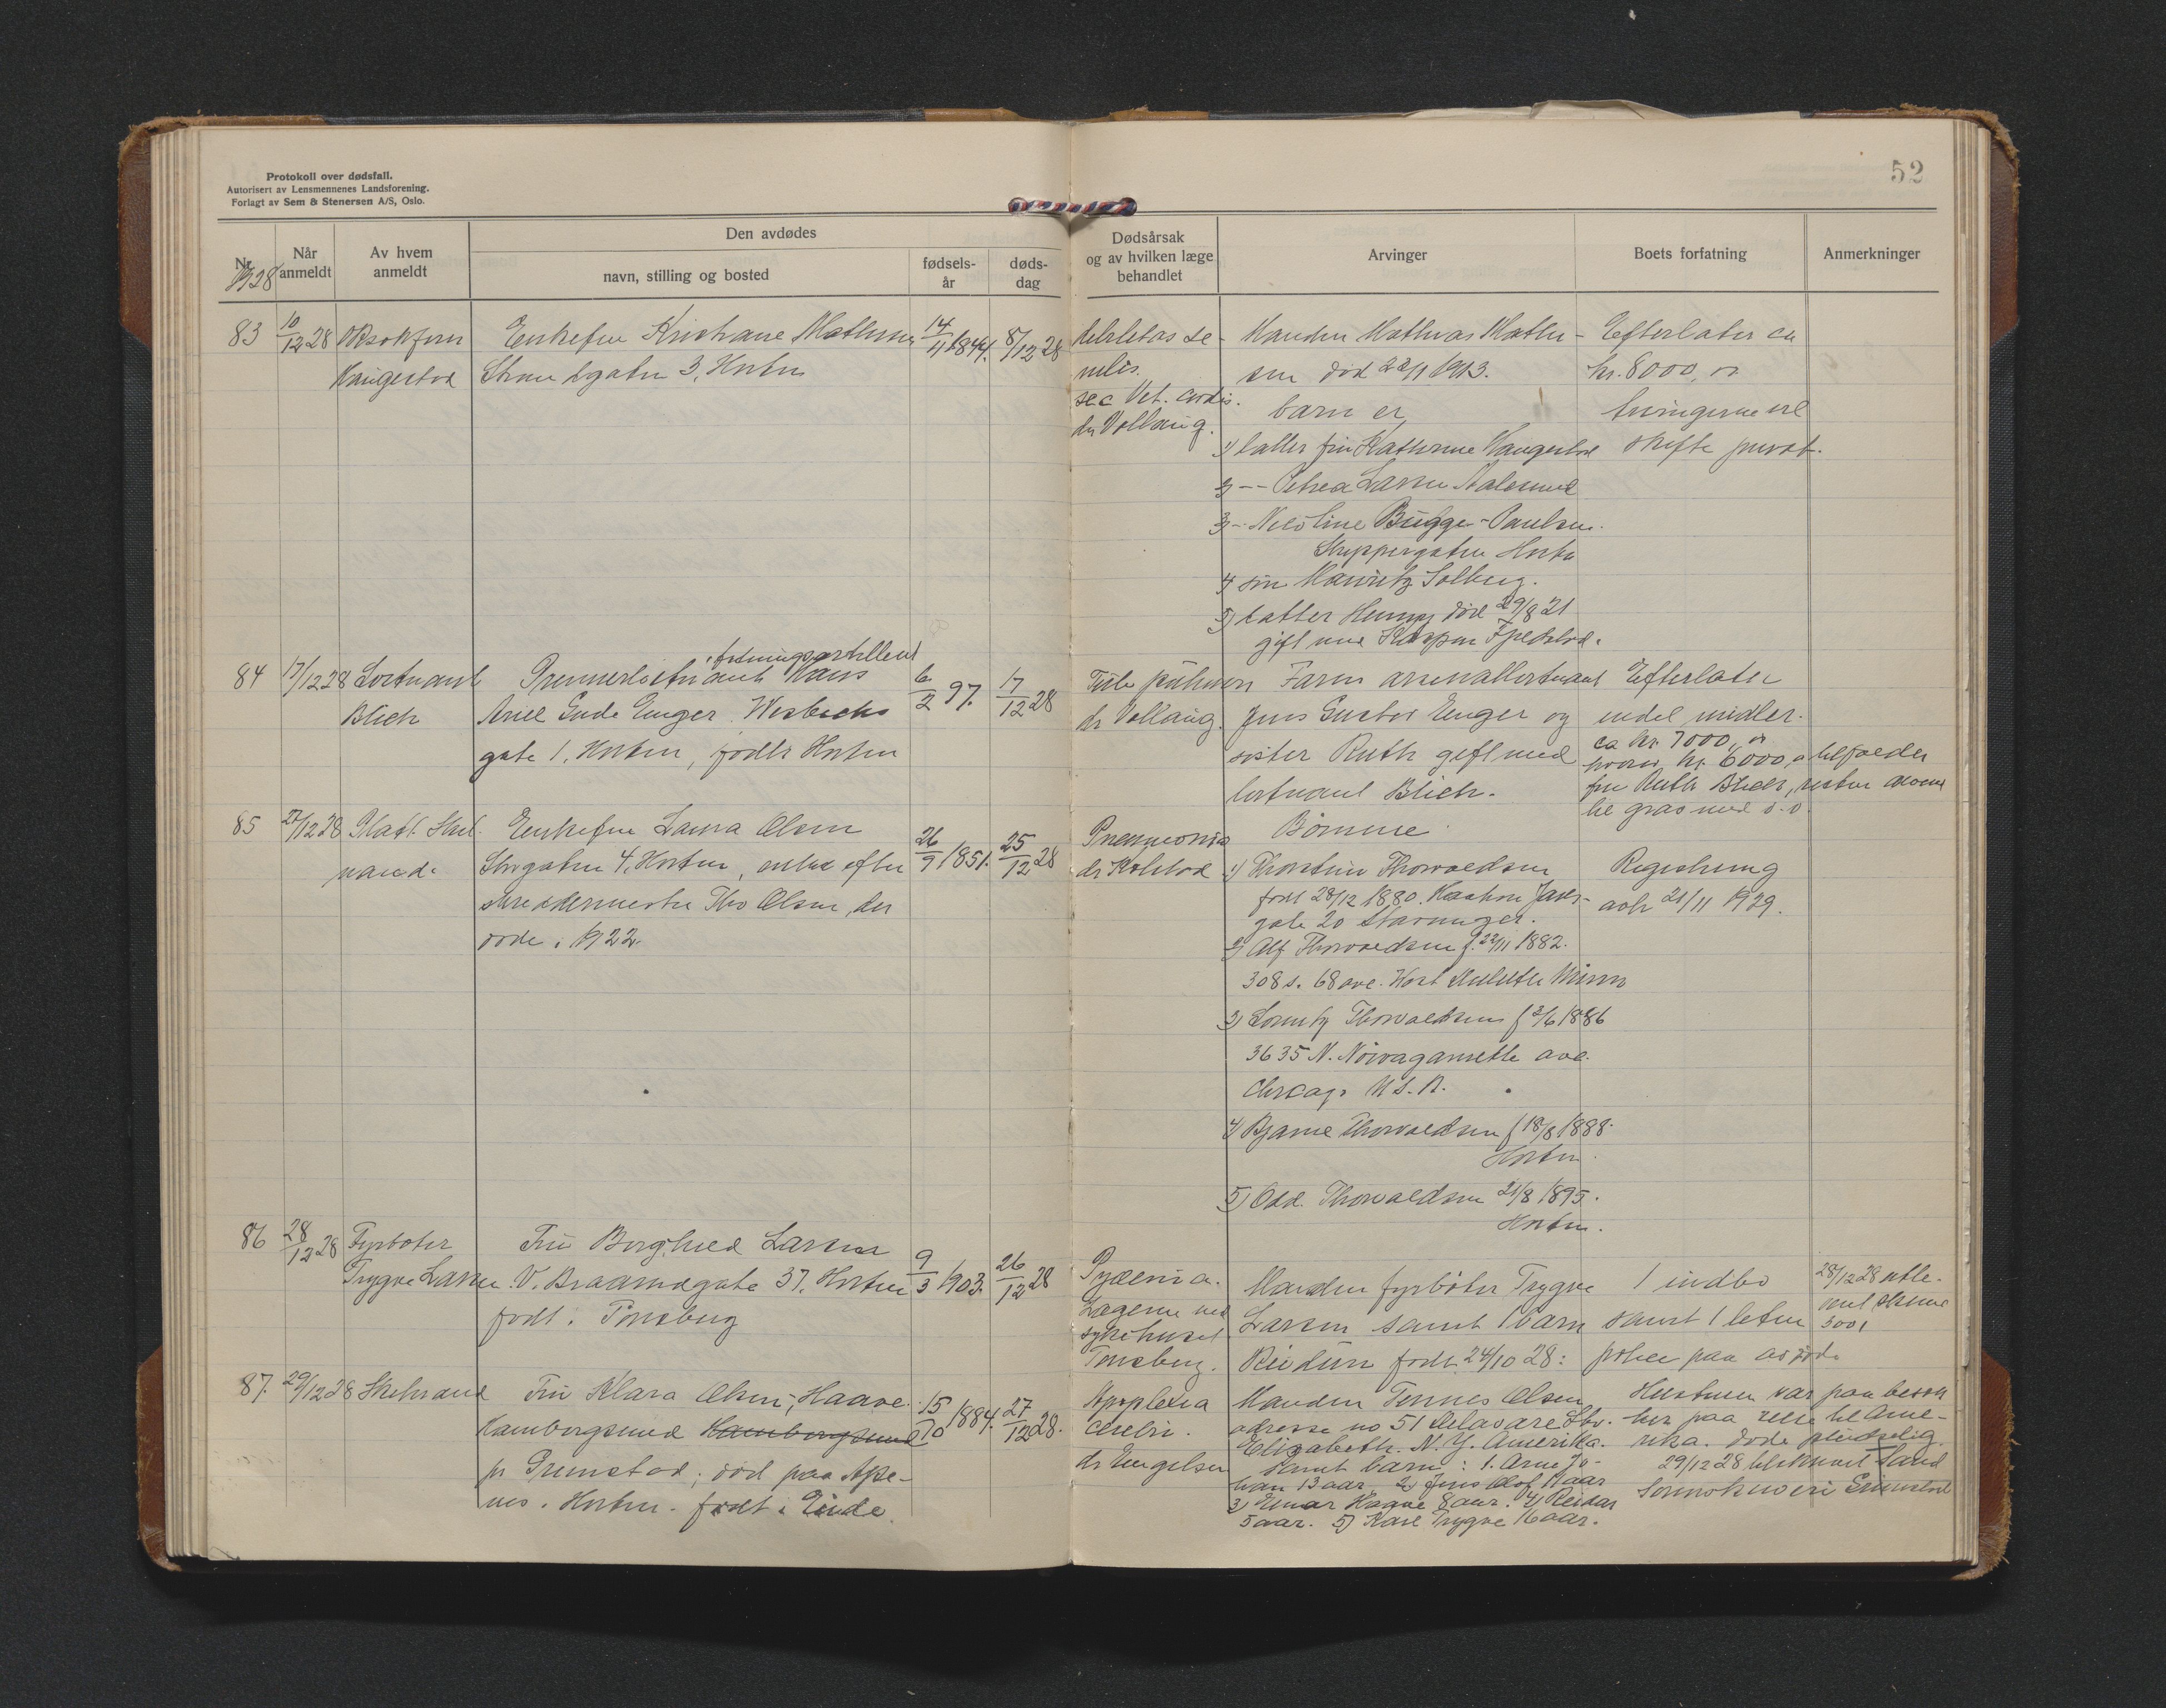 Protokoll over dødsfall.
Autorisert av Lensmennenes Landsforening.
Forlagt av Sem & Stenersen A/S, Oslo.
52
Nr.
1928
Når
anmeldt
Av hvem
anmeldt
Den avdødes
navn, stilling og bosted
fødsels-
år
døds-
dag
Dødsårsak
og av hvilken læge
behandlet
Arvinger
Boets forfatning
Anmerkninger
83 10/12 28
Kaugerød
Enkefru Kristiane Mathisen
Strandgaten 3, Horten
14/11 1844. 8/12 28
se-
nilis.
sec Vit. cordis.
dr Vollaug.
Manden Mathias Mathi-
sen død 22/11 1913.
barn er
1) datter fru Kathrine Kaugerød
2) -- Petrea Larsen Aalesund
3) -- Nicoline Bugge-Paulsen.
Skippergaten Horten
4) søn Mauritz Solberg.
5) datter Henny død 29/8 21
gift med Kaspar
Efterlater ca
kr. 8000,00
arvingerne vil
skifte privat.
84 17/12 28 Løitnant
Blich
Premierløitnant i festningsartilleri Hans
Ariel Gude Enger Wesbecks
gate 1, Horten, født Horten
6/2 97. 17/12 28
Tub. pulmon
dr Vollaug.
Faren arsenalløitnant
Jens Gustav Enger og
søster Ruth gift med
løitnant Blich.
Efterlater
endel midler.
ca kr 7000,00
hvorav kr. 6000,00 tilfalder
fru Ruth Blich, resten
til gravsted o.s.v.
85 27/12 28 Math. Skel-
nand.
Enkefru Laura Olsen
Storgaten 4, Horten, enke efter
skreddermester Tho Olsen, der
døde i 1922.
26/9 1851. 25/12 28
Pneumonia
dr Kolstad
Børnene
1) Thorstein Thorvaldsen
født 28/12 1880.
gate 20 Stavanger.
2) Alf Thorvaldsen f. 22/11 1882.
308 s. 68 ave. West Duluth Minn
3) Thorvaldsen f 2/6 1886
3635 N. Narragansette ave.
Chicago U.S.A.
4) Bjarne Thorvaldsen f 18/8 1888.
Horten.
5) Odd Thorvaldsen 21/8 1895.
Horten.
Registrering
avh 21/11 1929.
86 28/12 28 Fyrbøter
Trygve Larsen
Fru Borghild Larsen
V. Braarudgate 37. Horten
født i Tønsberg
9/3 1903. 26/12 28
Pyæmia.
Lægerne ved
sykehuset
Tønsberg.
Manden fyrbøter Trygve
Larsen samt 1 barn
Reidun født 24/10 28:
1 indbo
samt 1 liten
police paa avdøde
28/12 28 utle-
vert
87. 29/12 28
Fru Klara Olsen, Haave.
Hamborgsund Hamborgsund
pr Grimstad; død paa Apе-
nes i Horten. født i Eide.
15/10 1884. 27/12 28.
Apoplexia
cerebri.
dr Engelsen
Manden Tønnes Olsen
adresse no 51 Delavare Str.
Elizabeth. N.Y. Amerika.
samt barn: 1. Arne Jo-
han 13 aar. 2) Jens Olaf 11 aar
3) Einar Haave 8 aar. 4) Reidar
5 aar. 5) Karl Trygve 16 aar.
Hustruen var paa besøk
her paa reise til Ame-
rika. døde pludselig.
29/12 28 tilskrevet Sand